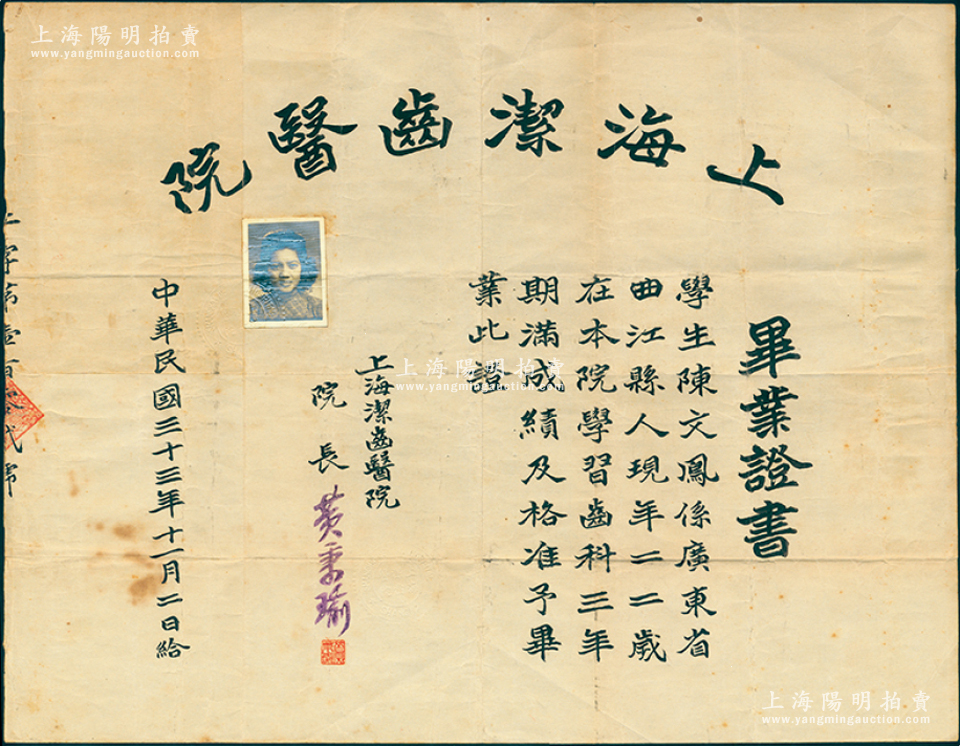 上海陽明拍賣
www.yangmingauction.com
上海潔齒醫院
畢業證書
學生陳文鳳係廣東省
曲江縣人現年二二歲
在本院學習齒科三年
期滿成績及格准予畢
業此證
上海潔齒醫院
院長 黃秉瑜
中華民國三十三年十一月二日給
字第壹百
上海陽明拍賣
www.yangmingauction.com
上海陽明拍賣
www.yangmingauction.com